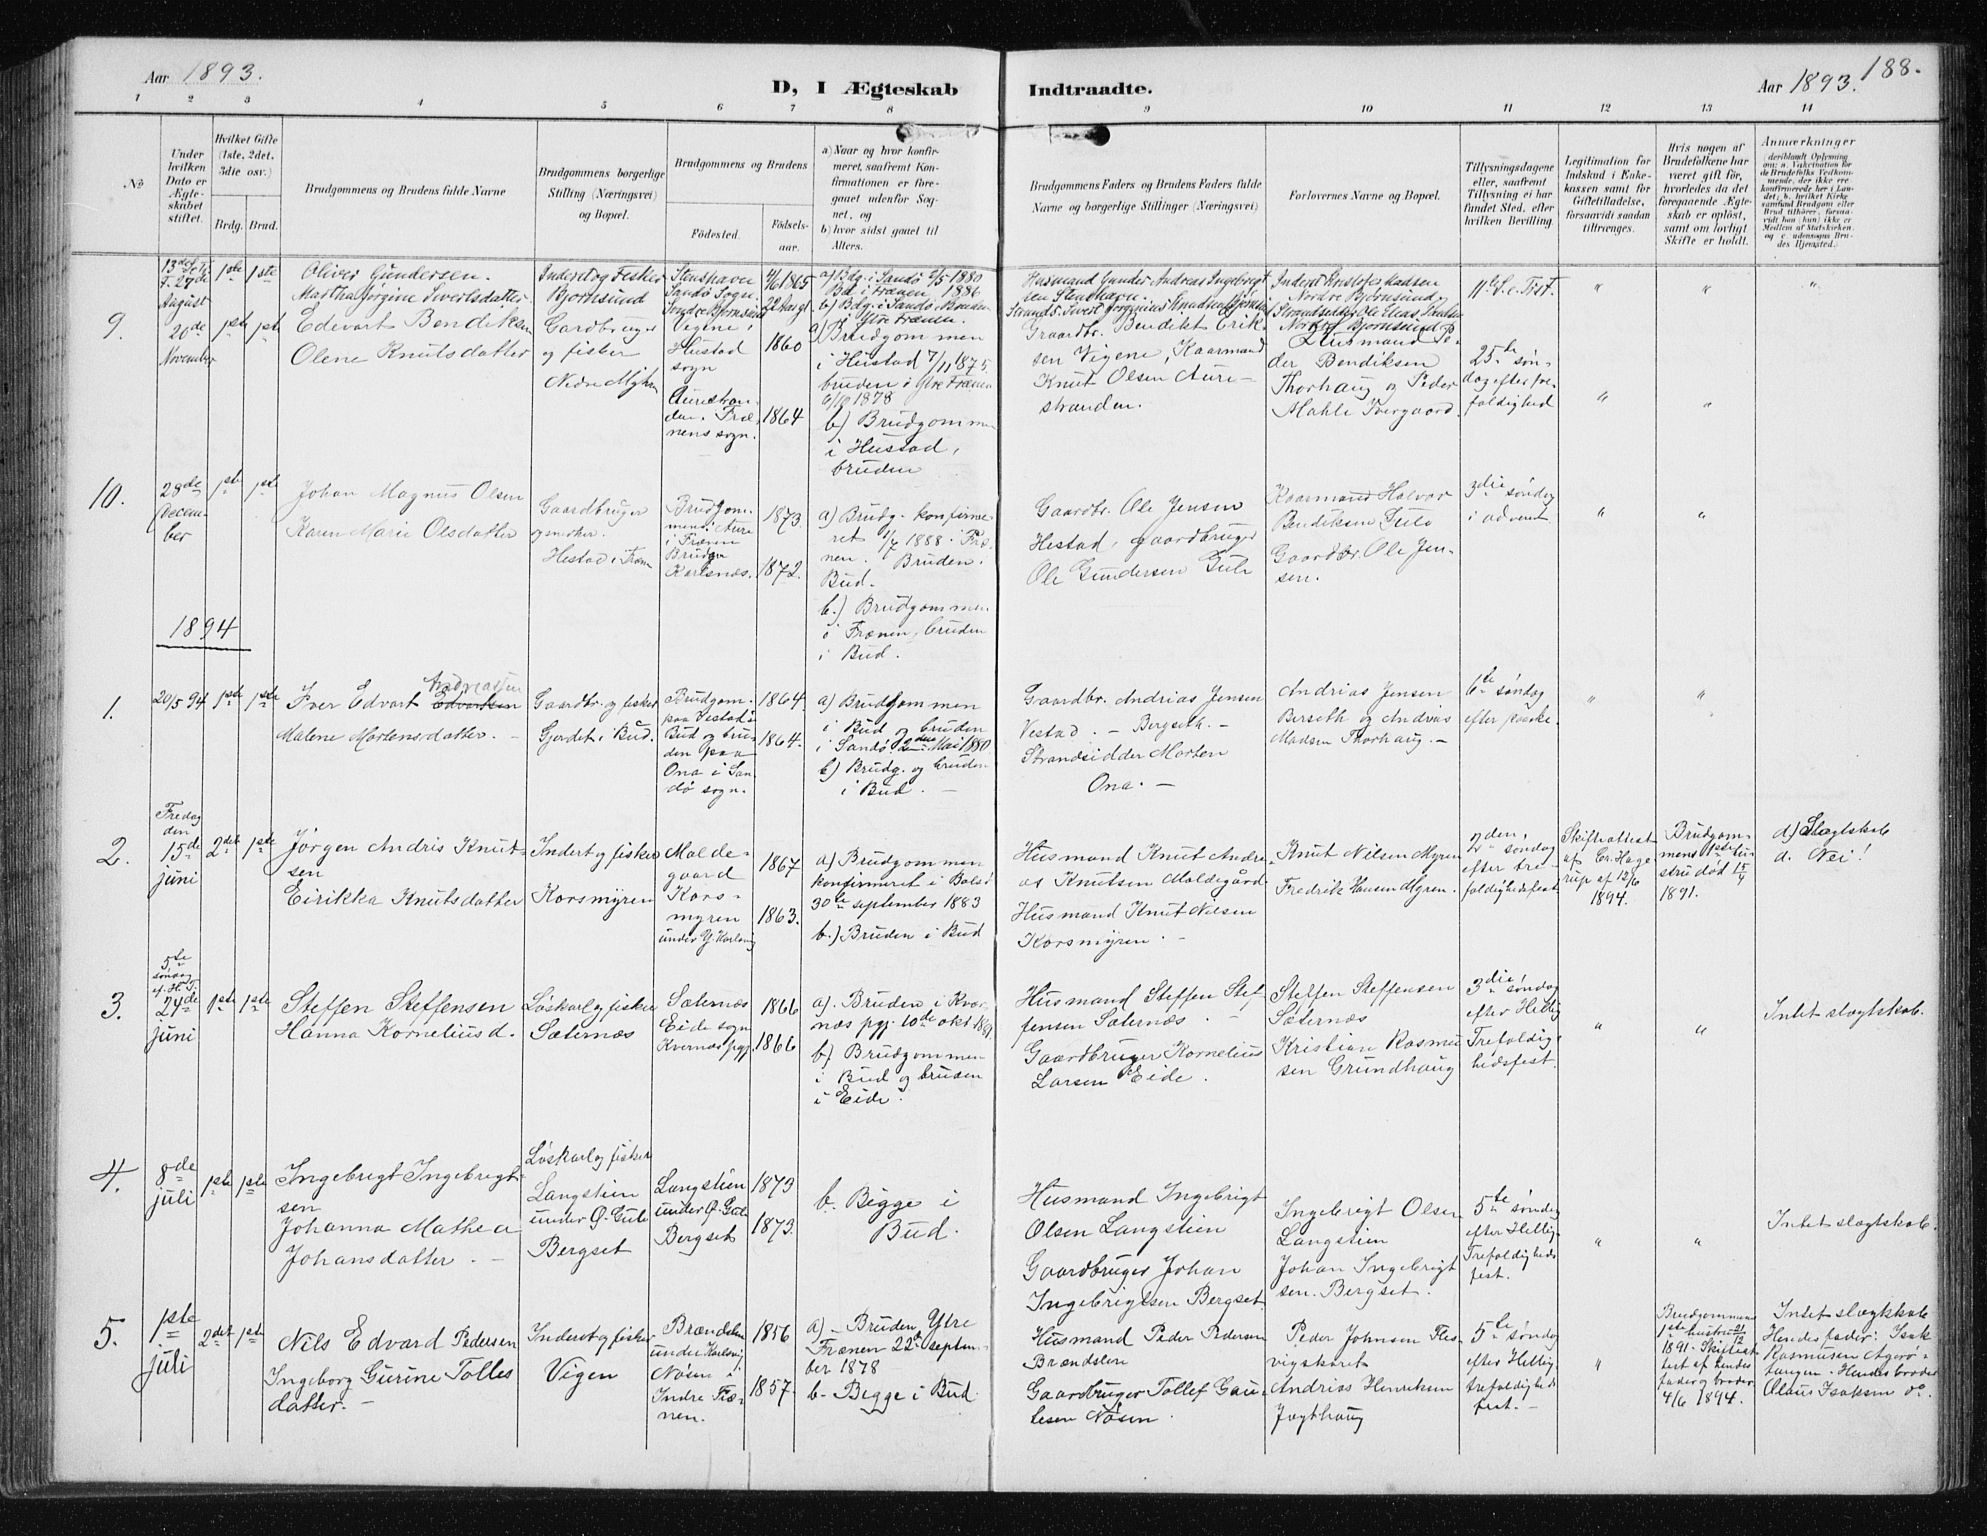 Aar 1893.
D, I Ægteskab Indtraadte.
Aar 1893. 188.
1 2 3 4 5 6 7 8 9 10 11 12 13 14
No
Under hvilken Dato er Ægteskabet stiftet.
Hvilket Gifte (1ste, 2det, 3die osv.)
Brdg. Brud.
Brudgommens og Brudens fulde Navne
Brudgommens borgerlige Stilling (Næringsvei) og Bopæl.
Brudgommens og Brudens
Fødested.
Fødselsaar.
a) Naar og hvor konfirmeret, saafremt Konfirmationen er foregaaet udenfor Sognet, og
b) hvor sidst gaaet til Alters.
Brudgommens Faders og Brudens Faders fulde Navne og borgerlige Stillinger (Næringsvei)
Forlovernes Navne og Bopæl.
Tillysningsdagene eller, saafremt Tillysning ei har fundet Sted, efter hvilken Bevilling
Legitimation for Indskud i Enkekassen samt for Giftetilladelse, forsaavidt saadan tiltrænges.
Hvis nogen af Brudefolkene har været gift før, hvorledes da det foregaaende Ægteskab er opløst, samt om lovligt Skifte er holdt.
Anmærkninger
August
1ste 1ste
Oliver Gundersen.
Martha Jørgine Sivertsdatter
Inderst og Fisker
Bjørnsund
Stenshavn
Sandø Sogn
Søndre Bjørnsund
4/6 1865
a) Bdg. i Sandø 1880
Bd. i Frænen 1886
b) Bdg. i Sandø, Bruden
i Ytre Frænen.
Husmand Gunder Andreas Ingebrigt
sen Stenshavn.
Nordre Bjørnsund
" " "
9.
26de
November
1ste 1ste
Edevart Bendiksen
Olene Knutsdatter
Gardbruger
og fisker
Nedre Myhren
Vigene i
Hustad
sogn
1860
Aurestran-
den. Fræ-
nens sogn.
1864
a) Brudgommen
i Hustad 7/11 1875
bruden i Ytre Frænen
1878
b) Brudgommen
i Hustad,
bruden
Graardbr. Bendikt Erik-
sen Vigene, Kaarmand
Knut Olsen Aure-
stranden.
Husmand Pe-
der Bendiksen
Thorhaug og Peder
Mahle Ivergaard.
25de søn-
dag efter tre-
foldighed
" "
10.
28de
Decem-
ber
1ste 1ste
Johan Magnus Olsen
Karen Marie Olsdatter
Gaardbruger
og snedker.
Hestad i Fræn
Brudgom-
men i Aure
i Frænen
Bruden
Karlsnæs.
1873
1872.
a) Brudg. konfirme-
ret 1/7 1888. Fræ-
nen. Bruden i
Bud.
b.) Brudgommen
i Frænen, bruden
i Bud.
Gaardbr. Ole Jensen
Hestad, gaardbruger
Ole Gundersen Gule
Kaarmand Halvor
Bendiksen Gule
Gaardbr. Ole Jen-
sen.
3die søndag
i advent
" "
1894
1.
20/5 94
1ste 1ste
Andreassen
Iver Edvart Edvartsen
Malene Mortensdatter. -
Gaardbr. og fisker
Gjerdet i Bud.
Brudgom.
paa Vestad i
Bud og bru-
den paa
Ona i San-
dø sogn.
1864
1864.
a) Brudgommen
i Bud og bruden
i Sandø 2den Mai 1880
b) Brudg. og bruden
i Bud. -
Gaardbr. Andrias Jensen
Vestad. - Bergseth. -
Strandsidder Morten
Ona. -
Andrias Jensen
Berseth og Andrias
Madsen Thorhaug. -
6te søndag
efter paaske.
" "
2.
Fredag
den
15de
juni
2det 1ste
Jørgen Andris Knut-
sen
Eirikka Knutsdatter
Inderst og fisker
Korsmyren
Molde-
gaard
Kors-
myren
under Y. Harlsvig
1867
1863.
a) Brudgommen
konfirmeret i Bolsø
30te september 1883
b.) Bruden i Bud
Husmand Knut Andre-
as Knutsen Moldegård
Husmand Knut Nilsen
Korsmyren. -
Knut Nilsen Myren
Fredrik Hansen Myren.
2den søndag
efter tre-
foldighedsfest
Skifteattest
af Cr. Hage-
rup af 12/6
1894.
Brudgom-
mens 1ste hu-
stru død
1891.
d) Slægtskab
d. Nei!
3.
5te
søndag
ef. H. T.
24de
juni
1ste 1ste
Steffen Steffensen
Hanna Korneliusd.
Løskarl og fisker
Sæternæs
Sæternæs
Eide sogn
Kvernæs pgj.
1866
1866
a). Bruden i Kvær-
næs pgj. 10de okt 1881.
b) Brudgommen
i Bud og bruden
i Eide.
Husmand Steffen Stef-
fensen Sæternæs. -
Gaardbruger Kornelius
Larsen Eide.
Steffen Steffensen
Sæternæs
Kristian Rasmu-
sen Grundhaug
3die søndag
efter Hellig
Trefoldig-
hedsfest.
" "
Intet slægtskab.
4.
8de
juli
1ste 1ste
Ingebrigt Ingebrigt-
sen
Johanna Mathea
Johansdatter. -
Løskarl og fisker
Langstien
under Ø. Gule
Bergset
Langstien
under Ø. Gule
Bergset
1873
1873.
b. Bigge i
Bud.
Husmand Ingebrigt
Olsen Langstien
Gaardbruger Johan
Ingebrigtsen Bergset
Ingebrigt Olsen
Langstien
Johan Ingebrigt
sen. Bergset.
5te søndag
efter Hellig-
Trefoldigheds
fest.
" "
Intet slægtskab.
5.
1ste
juli
2det 1ste
Nils Edvard Pedersen
Ingeborg Gurine Tolles
datter. -
Inderst og fisker
Vigen
Brændslen
under Harlsvig,
Nøsen i
Indre Fræ-
nen.
1856
1857.
a) - Bruden, Ytre
Frænen 22de septem-
ber 1878
b- Begge i Bud
Husmand Peder Pedersen
Brændslen
Gaardbruger Tollef Gau-
tesen Nøsen.
Peder Johnsen Fles-
vigskaret
Andrias Henriksen
Jægthaug
5te søndag
efter Hellig-
trefoldigheds
fest. -
"
Brudgommens
1ste hustru
1891. Skifteat-
test af hendes
fader og broder
4/6 1894.
Intet slægtskab
Hendes fader: Isak
Rasmusen Agerø-
tangen. Hendes broder
Olaus Isaksen do.